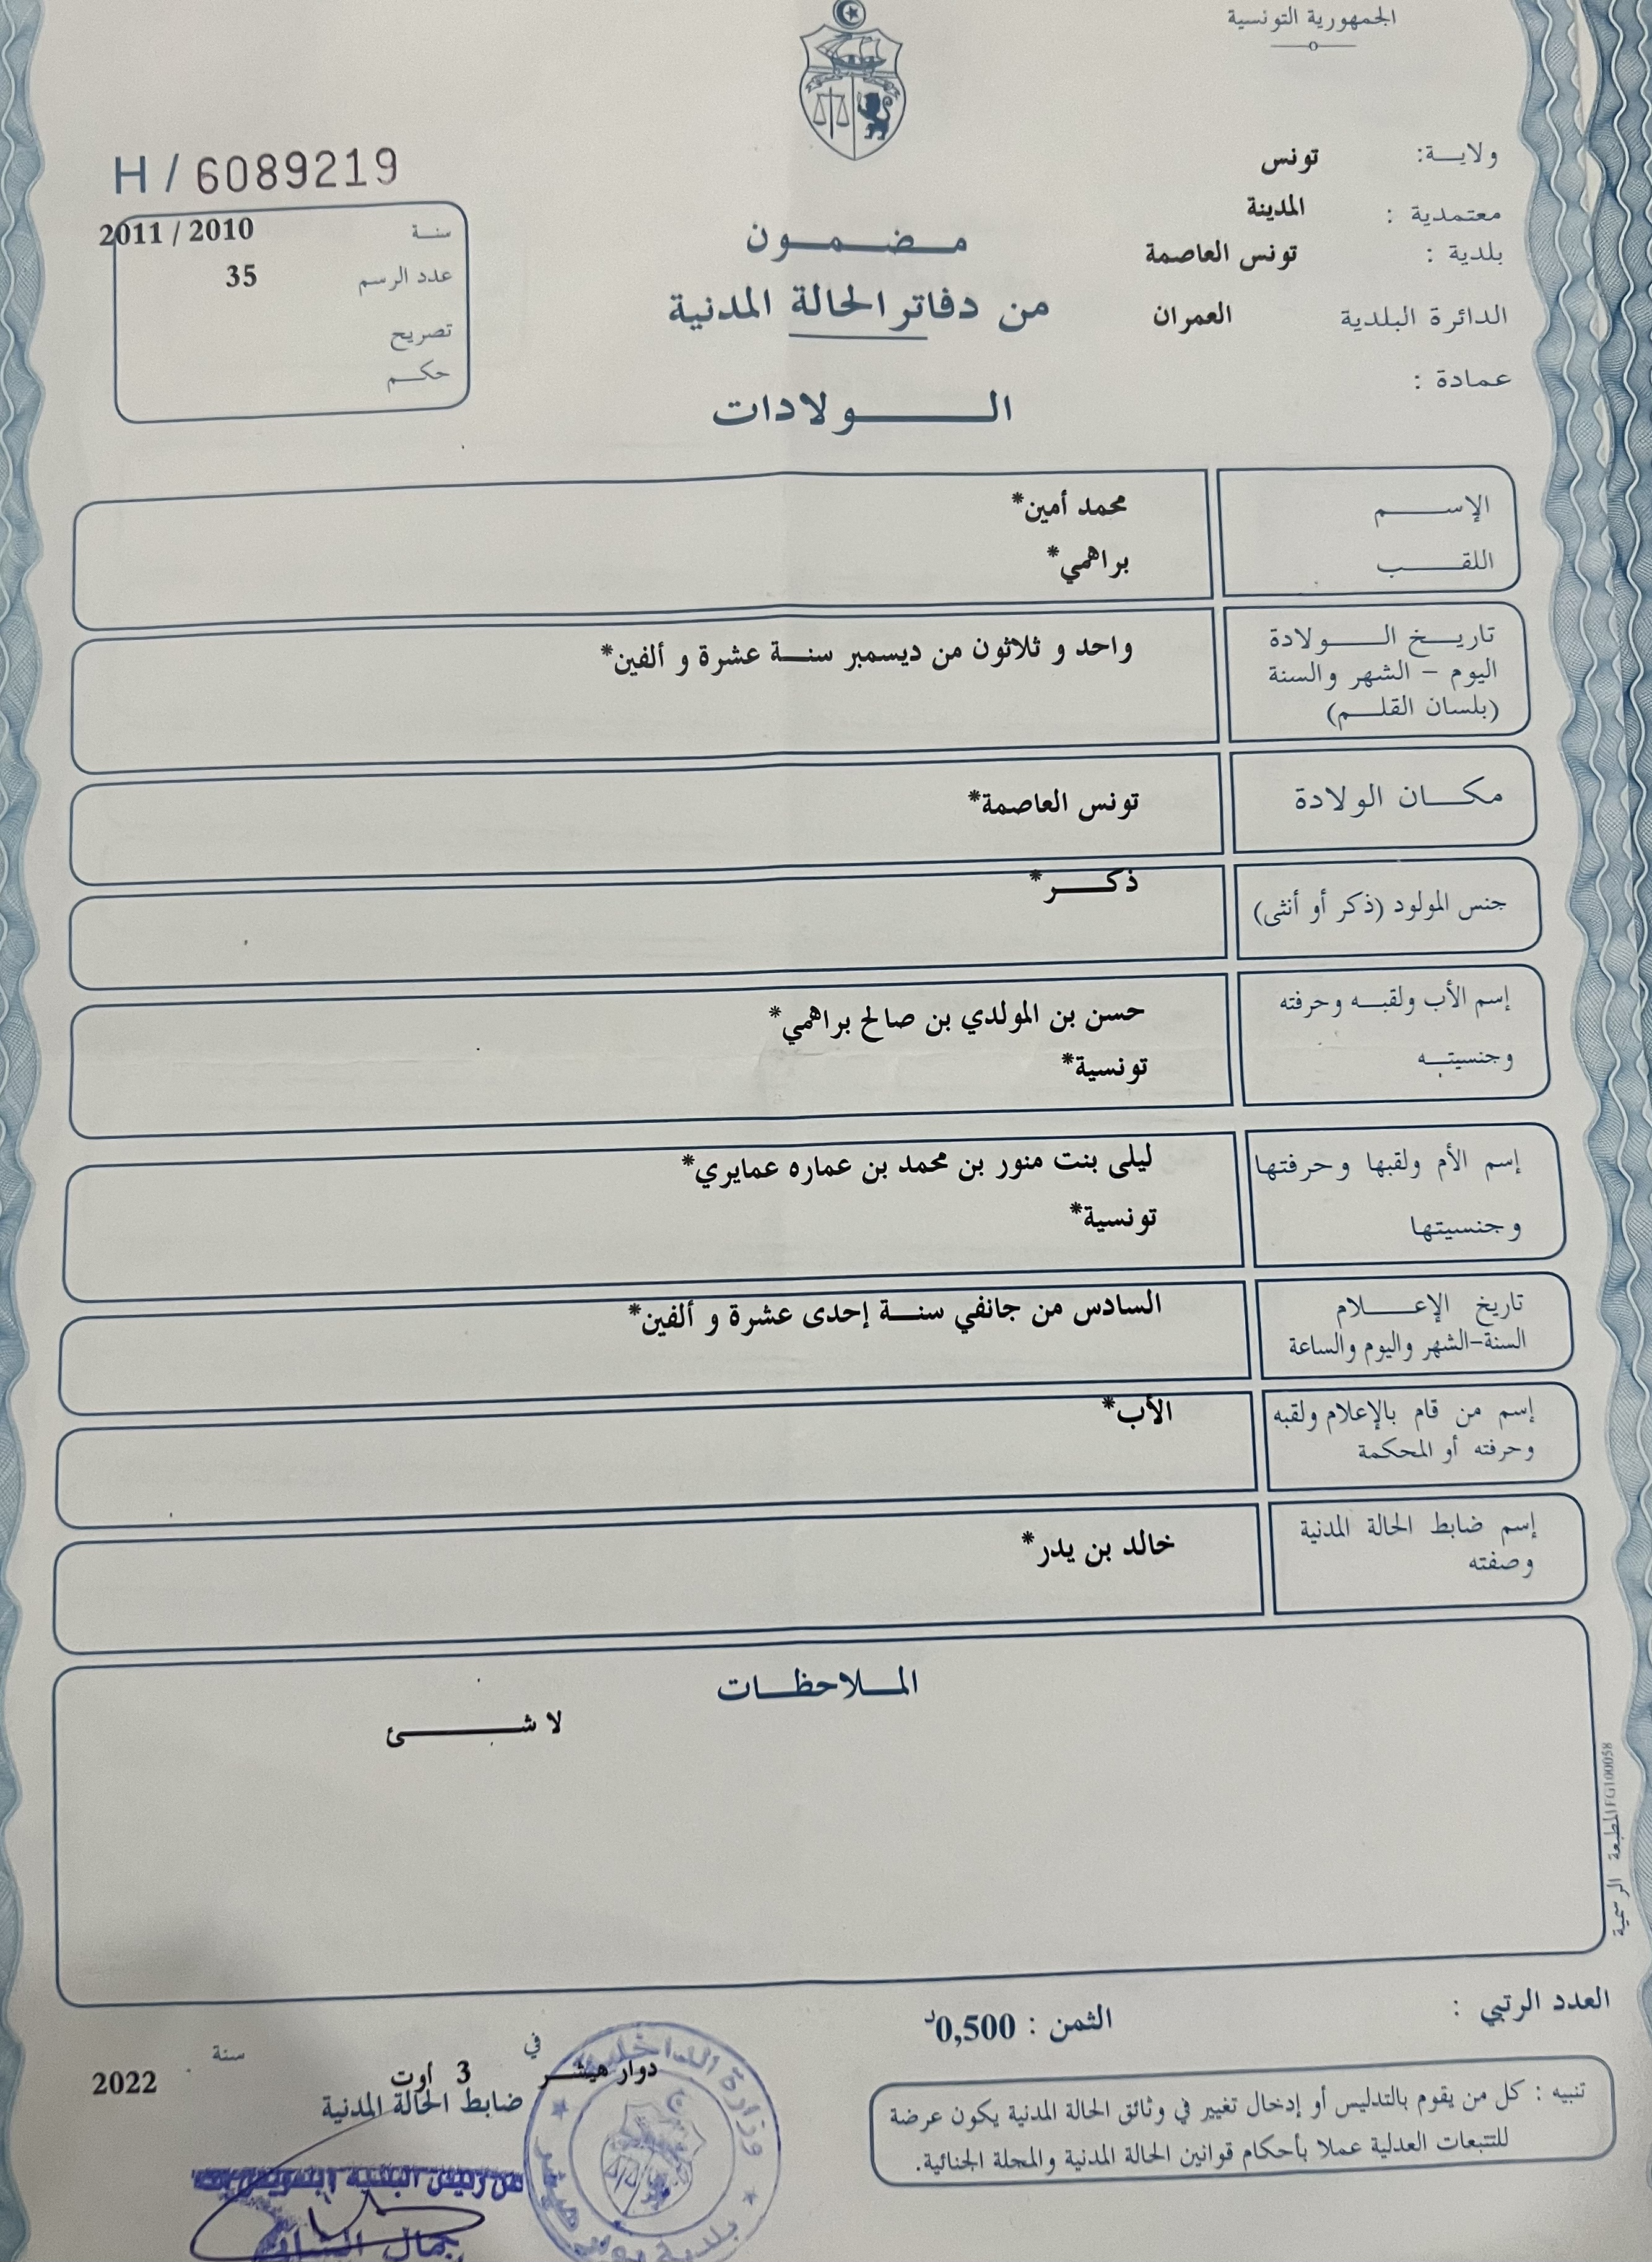 الجمهورية التونسية
ولاية: تونس
معتمدية : المدينة
بلدية : تونس العاصمة
الدائرة البلدية العمران
عمادة :
H / 6089219
سنة 2010 / 2011
عدد الرسم 35
تصريح
حكم
مضمون
من دفاتر الحالة المدنية
الولادات
الإسم محمد أمين*
اللقب براهمي*
تاريخ الولادة واحد و ثلاثون من ديسمبر سنة عشرة و ألفين*
اليوم – الشهر والسنة
(بلسان القلم)
مكان الولادة تونس العاصمة*
جنس المولود (ذكر أو أنثى) ذكر*
إسم الأب ولقبه وحرفته حسن بن المولدي بن صالح براهمي*
وجنسيته تونسية*
إسم الأم ولقبها وحرفتها ليلى بنت منور بن محمد بن عماره عمايري*
وجنسيتها تونسية*
تاريخ الإعلام السادس من جانفي سنة إحدى عشرة و ألفين*
السنة-الشهر واليوم والساعة
إسم من قام بالإعلام ولقبه الأب*
وحرفته أو المحكمة
إسم ضابط الحالة المدنية خالد بن يدر*
وصفته
الملاحظات
لا شئ
المطبعة الرسمية FG100058
العدد الرتبي :
الثمن : 0,500د
تنبيه : كل من يقوم بالتدليس أو إدخال تغيير في وثائق الحالة المدنية يكون عرضة
للتتبعات العدلية عملا بأحكام قوانين الحالة المدنية والمجلة الجنائية.
دوار هيشر في 3 أوت سنة 2022
ضابط الحالة المدنية
عن رئيس البلدية وبتفويض منه
جمال
وزارة الداخلية
بلدية دوار هيشر